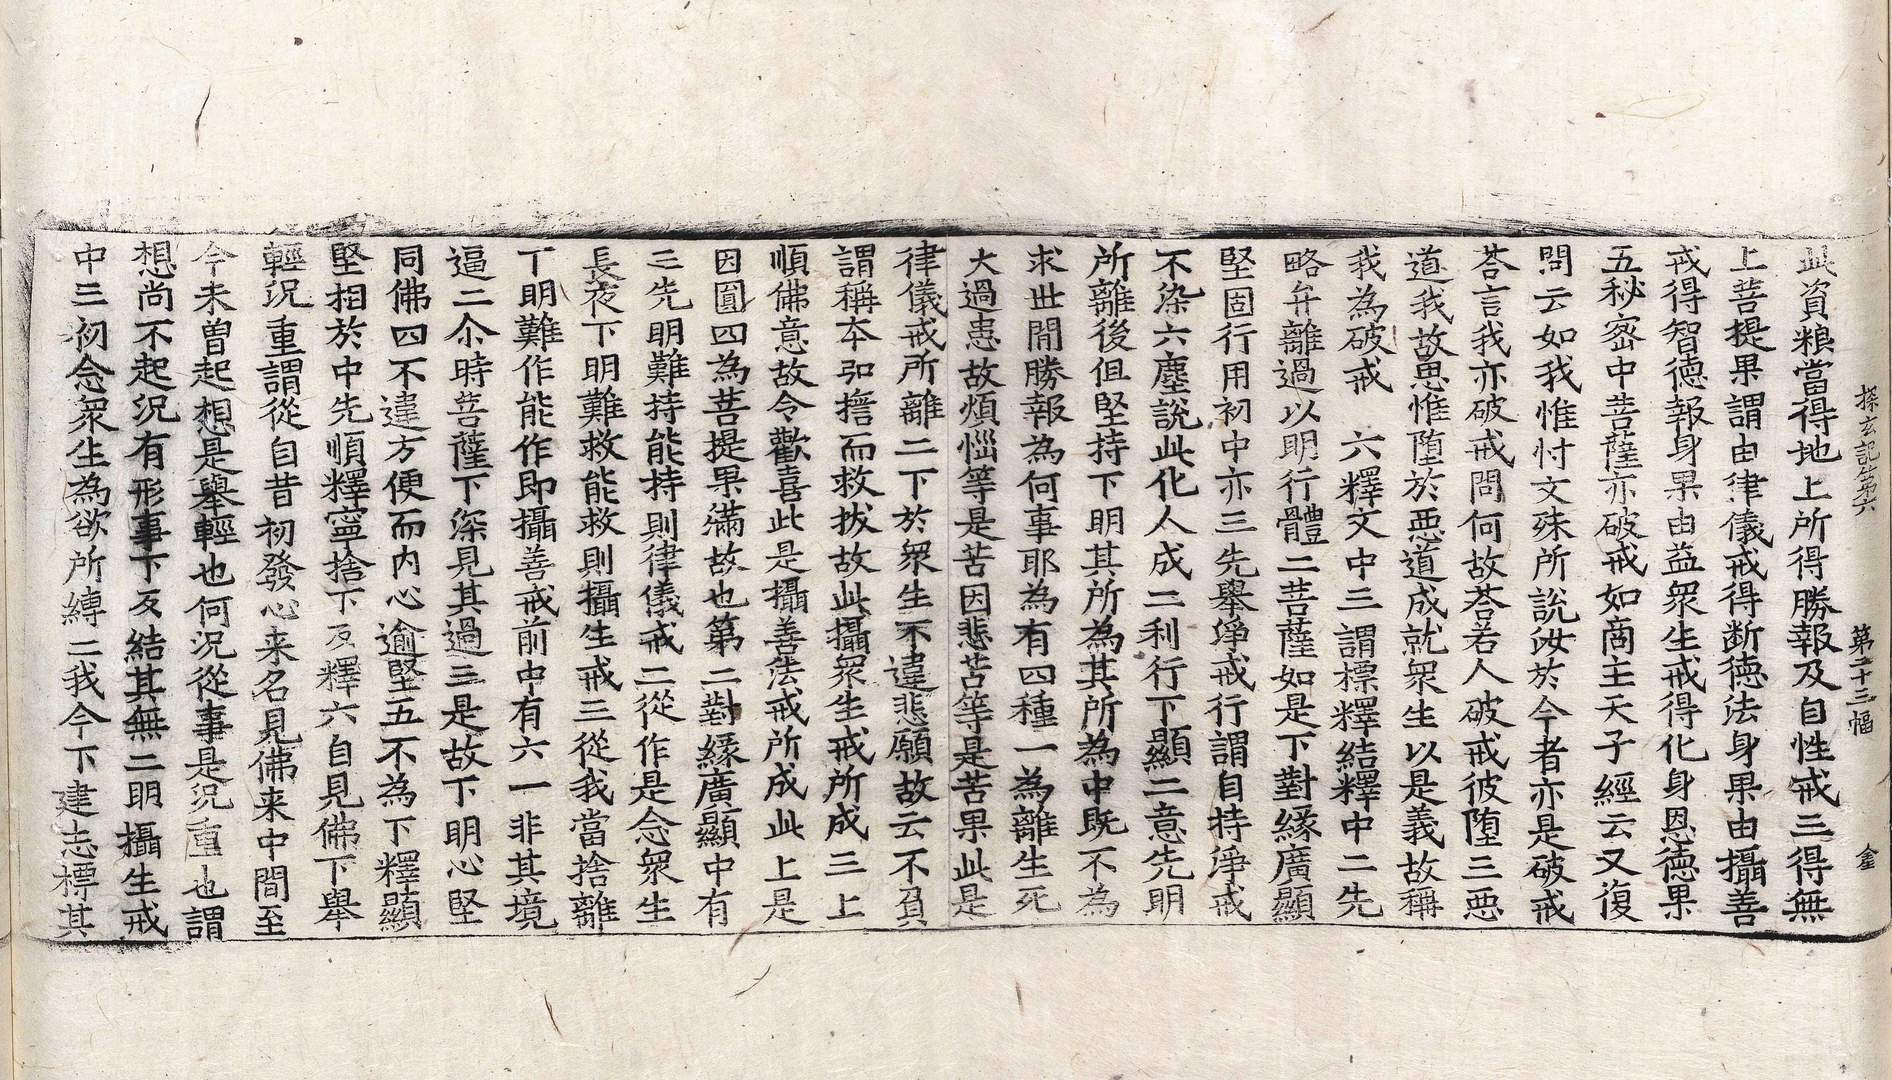 探玄記第六　第二十三幅　金
此資粮當得地上所得勝報及自性戒三得無
上菩提果謂由律儀戒得断德法身果由攝善
戒得智德報身果由益衆生戒得化身恩德果
五秘密中菩薩亦破戒如商主天子經云又復
問云如我惟忖文殊所說汝於今者亦是破戒
荅言我亦破戒問何故荅若人破戒彼堕三惡
道我故思惟堕於惡道成就衆生以是義故稱
我為破戒　六釋文中三謂標釋結釋中二先
略弁離過以明行體二菩薩如是下對緣廣顯
堅固行用初中亦三先舉淨戒行謂自持淨戒
不染六塵說此化人成二利行下顯二意先明
所離後但堅持下明其所為其所為中既不為
求世間勝報為何事耶為有四種一為離生死
大過患故煩惱等是苦因悲苦等是苦果此是
律儀戒所離二下於衆生不違悲願故云不負
謂稱本弘擔而救拔故此攝衆生戒所成三上
順佛意故令歡喜此是攝善法戒所成此上是
因圎四為菩提果滿故也第二對緣廣顯中有
三先明難持能持則律儀戒二從作是念衆生
長夜下明難救能救則攝生戒三從我當捨離
下明難作能作即攝善戒前中有六一非其境
逼二尒時菩薩下深見其過三是故下明心堅
同佛四不違方便而内心逾堅五不為下釋顯
堅相於中先順釋寧捨下反釋六自見佛下舉
輕況重謂從自昔初發心来名見佛来中間至
今未曽起想是舉輕也何況從事是況重也謂
想尚不起況有形事下反結其無二明攝生戒
中三初念衆生為欲所縛二我今下建志標其